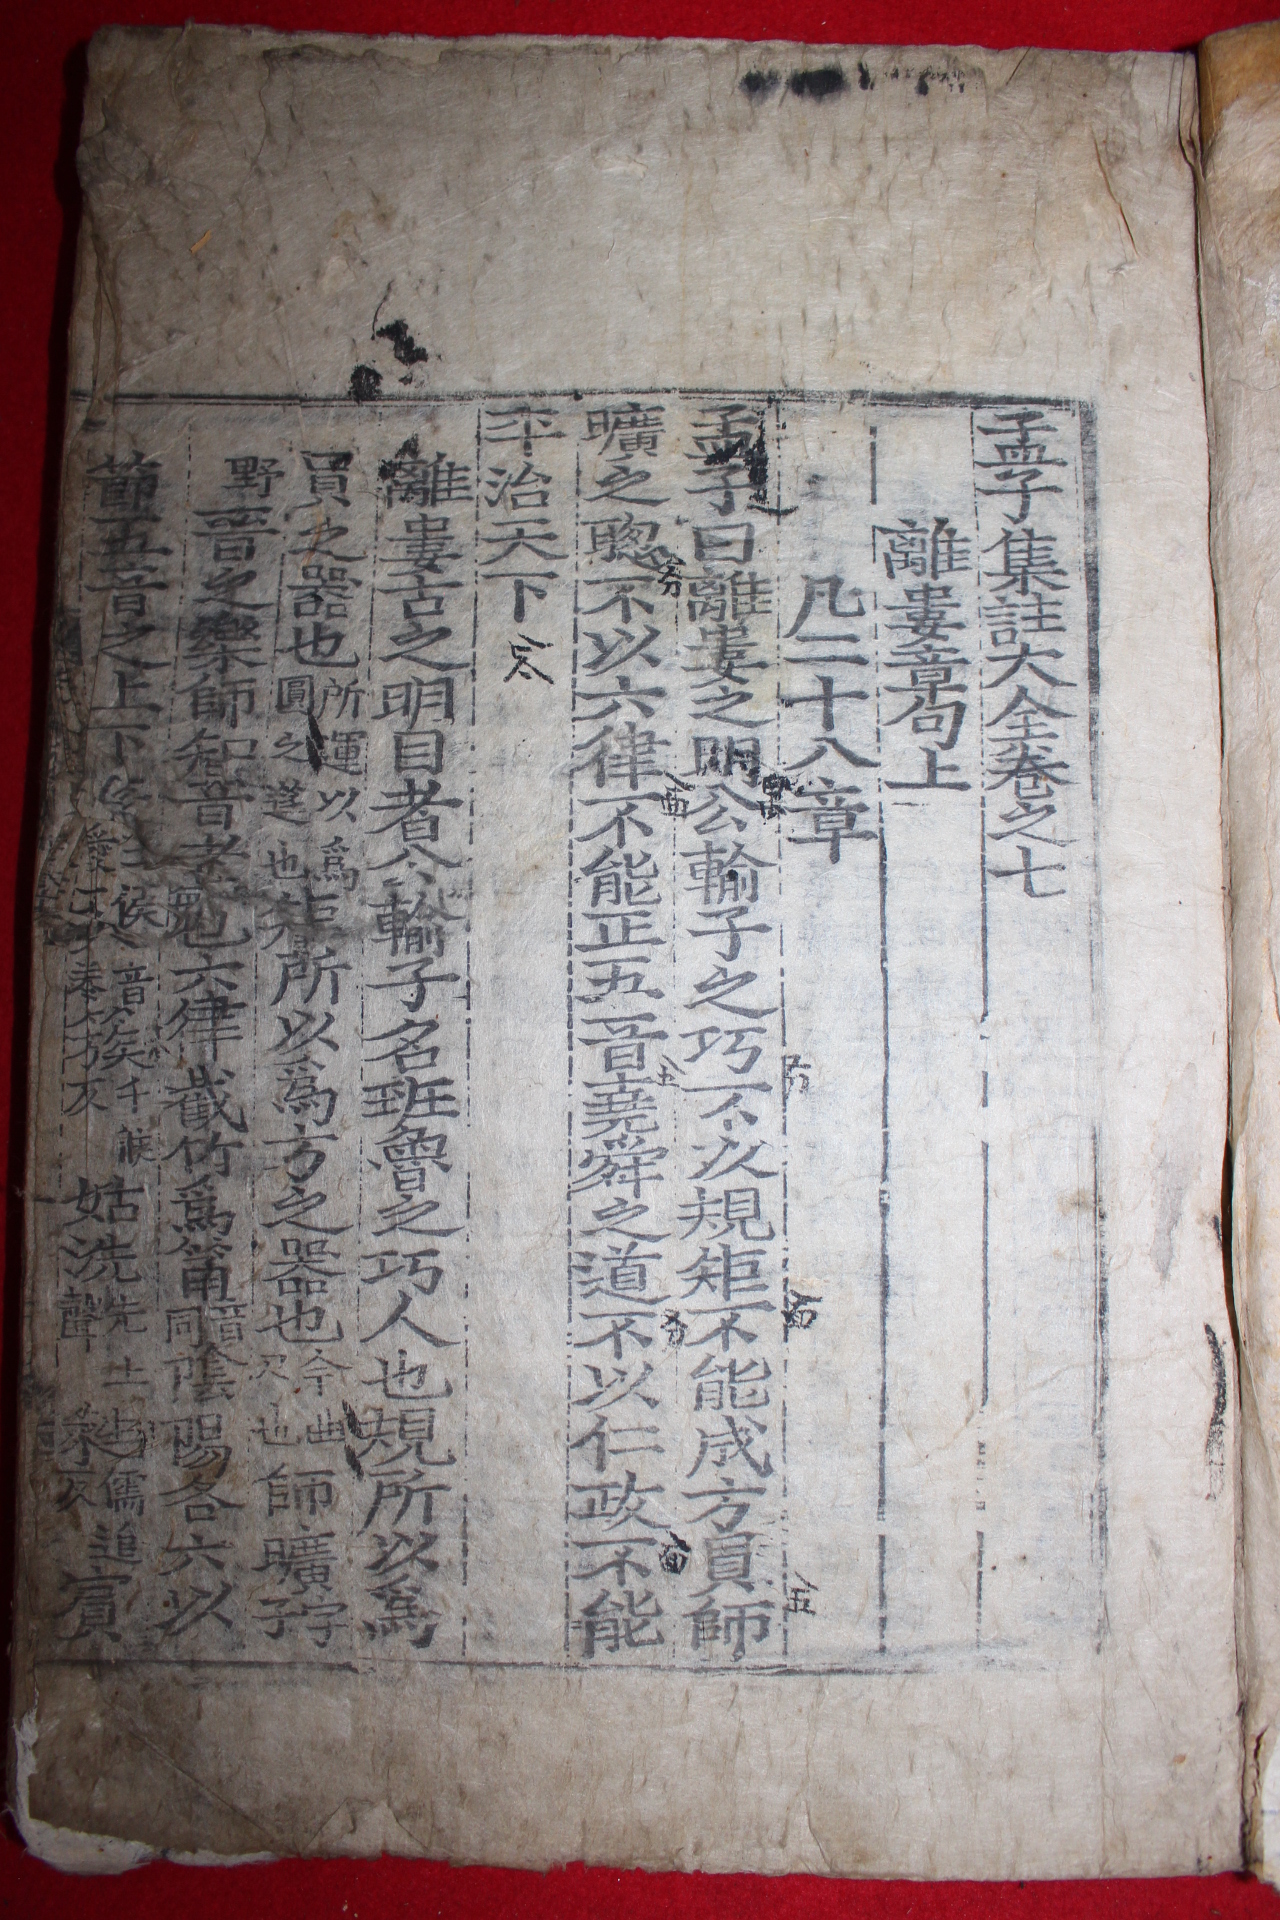 孟子集註大全卷之七
離婁章句上
凡二十八章
孟子曰離婁之明公輸子之巧不以規矩不能成方員師
曠之聰不以六律不能正五音堯舜之道不以仁政不能
平治天下
離婁古之明目者公輸子名班魯之巧人也規所以爲
員之器也所運以爲圓之
也矩所以爲方之器也今曲尺也師曠字子
野晉之樂師知音者也六律截竹爲筩音同陰陽各六以
節五音之上下
音簇千候姑洗先上聲
賓